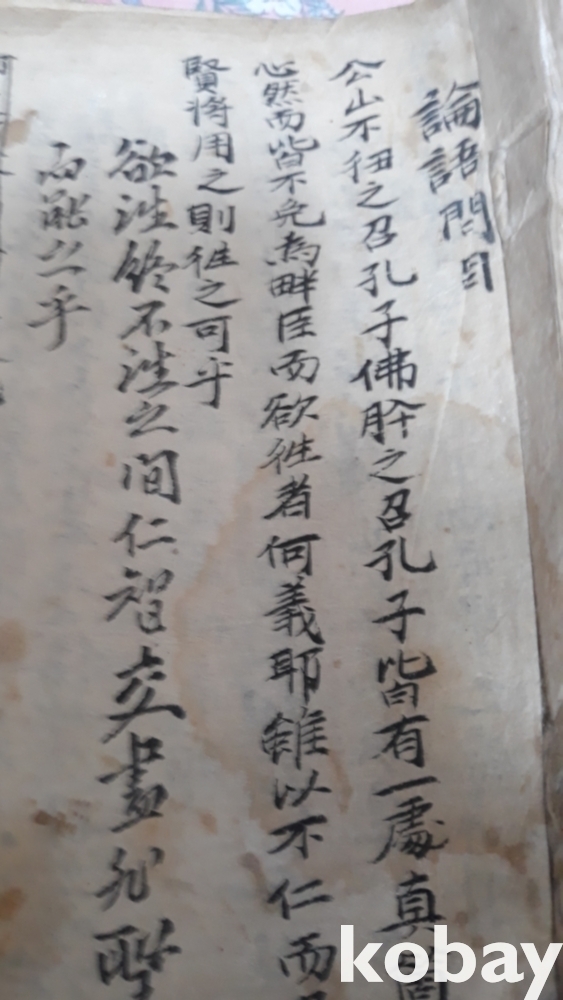 論語問目
公山不狃之召孔子佛肸之召孔子皆有一處真
心然而皆不免為畔臣而欲徃者何義耶雖以不仁而
賢將用之則徃之可乎
欲徃終不徃之間仁智交盡非聖
而能之乎
kobay